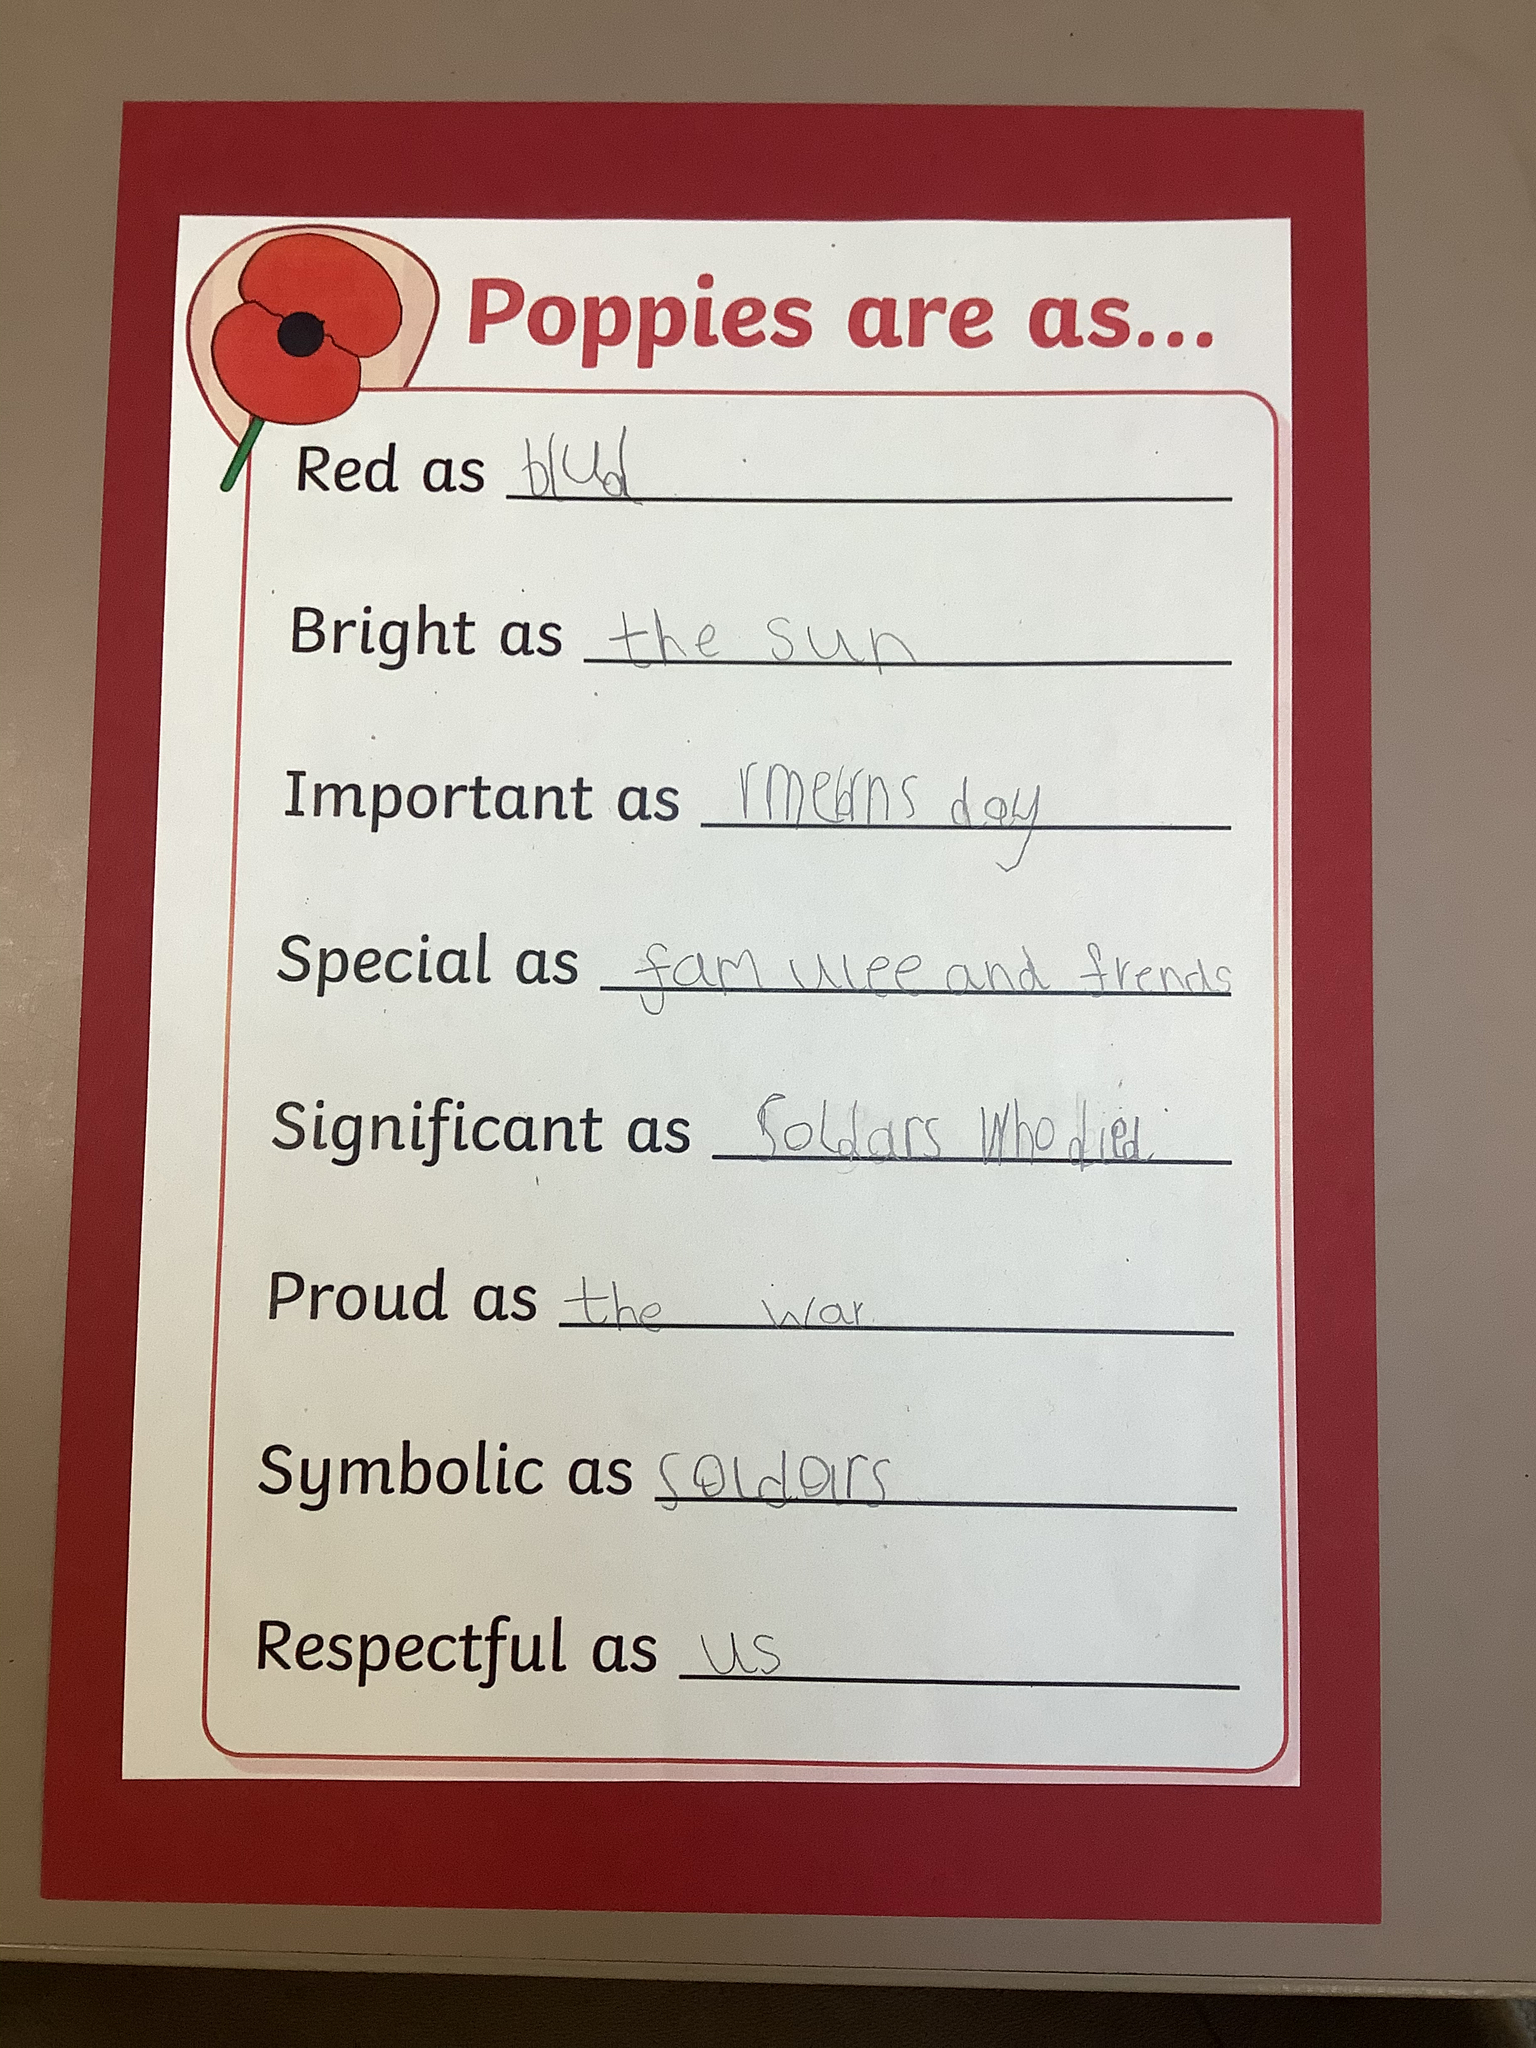 Poppies are as...
Red as blud
Bright as the sun
Important as rmearns day
Special as fam ulee and frends
Significant as Soldars Who died.
Proud as the war.
Symbolic as soldars
Respectful as us